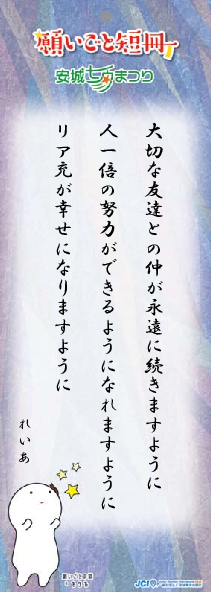 願いごと短冊
安城七夕まつり
大切な友達との仲が永遠に続きますように
人一倍の努力ができるようになれますように
リア充が幸せになりますように
れいあ
願いごと短冊
JCI